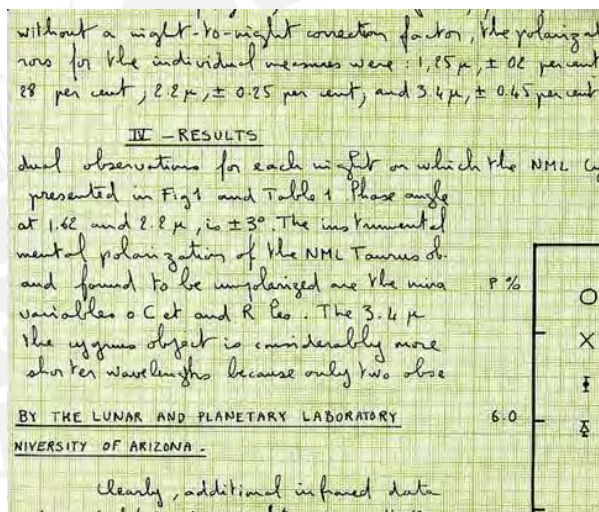 without a night-to-night correction factor, the polarizat
rors for the individual measures were : 1,25 μ, ± 02 percent
28 per cent, 2.2 μ, ± 0.25 per cent, and 3.4 μ, ± 0.45 per cent
IV - RESULTS
dual observations for each night on which the NML Cy
presented in Fig 1 and Table 1 Phase angle
at 1.62 and 2.2 μ, is ± 3°. The instrumental
mental polarization of the NML Taurus ob.
and found to be unpolarized are the mira
variables o Cet and R Leo. The 3.4 μ
the cygnus object is considerably more
shorter wavelengths because only two obse
P %
6.0
BY THE LUNAR AND PLANETARY LABORATORY
NIVERSITY OF ARIZONA.
Clearly, additional infrared data